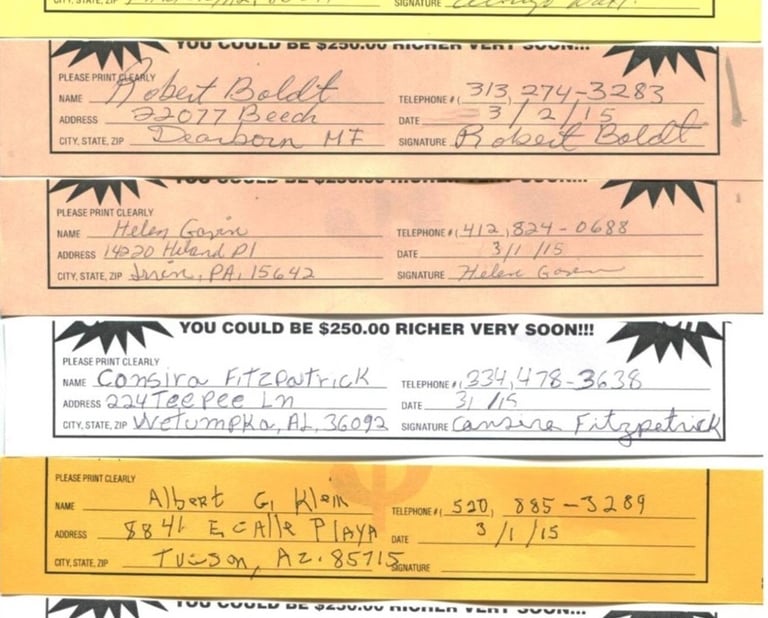 CITY, STATE, ZIP SIGNATURE
YOU COULD BE $250.00 RICHER VERY SOON!!!
PLEASE PRINT CLEARLY
NAME Robert Boldt TELEPHONE # (313) 274-3283
ADDRESS 22077 Beech DATE 3/2/15
CITY, STATE, ZIP Dearborn MI SIGNATURE Robert Boldt
YOU COULD BE $250.00 RICHER VERY SOON!!!
PLEASE PRINT CLEARLY
NAME Helen TELEPHONE # (412) 824-0688
ADDRESS 14220 Hiland Pl DATE 3/1/15
CITY, STATE, ZIP Irwin, PA, 15642 SIGNATURE Helen
YOU COULD BE $250.00 RICHER VERY SOON!!!
PLEASE PRINT CLEARLY
NAME Consira Fitzpatrick TELEPHONE # (334) 478-3638
ADDRESS 224 Teepee Ln DATE 3/ /15
CITY, STATE, ZIP Wetumpka, AL, 36092 SIGNATURE Consira Fitzpatrick
PLEASE PRINT CLEARLY
NAME Albert G. Klein TELEPHONE # (520) 885-3289
ADDRESS 8841 E Calle Playa DATE 3/1/15
CITY, STATE, ZIP Tucson, Az. 85715 SIGNATURE
YOU COULD BE $250.00 RICHER VERY SOON!!!